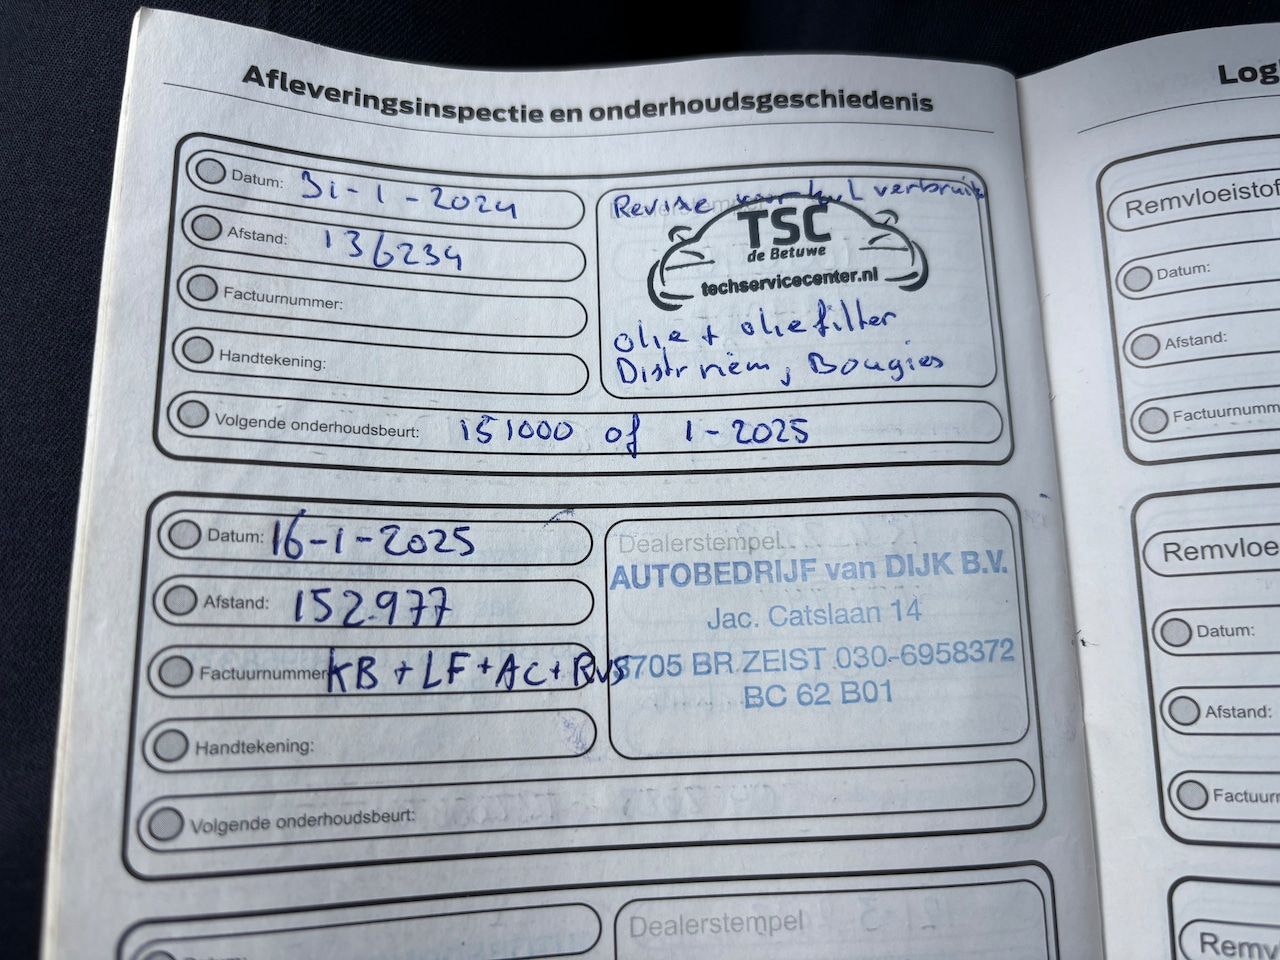 Afleveringsinspectie en onderhoudsgeschiedenis
Datum: 31-1-2024
Afstand: 136234
Factuurnummer:
Handtekening:
Revisie verbruik
TSC
de Betuwe
techservicecenter.nl
olie + oliefilter
Distr riem, Bougies
Volgende onderhoudsbeurt: 151000 of 1-2025
Datum: 16-1-2025
Afstand: 152.977
Factuurnummer KB + LF + AC + RVS
Handtekening:
Dealerstempel
AUTOBEDRIJF van DIJK B.V.
Jac. Catslaan 14
3705 BR ZEIST 030-6958372
BC 62 B01
Volgende onderhoudsbeurt:
Dealerstempel
Remvloeistof
Datum:
Afstand:
Factuurnumm
Remvloe
Datum:
Afstand:
Factuur
Remv